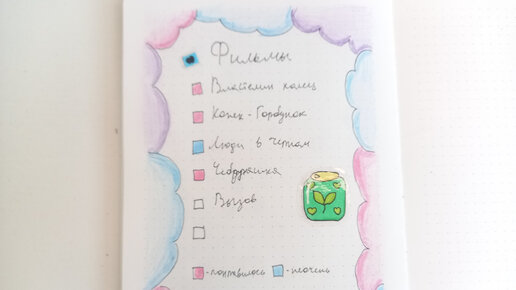 Фильмы
Властелин колец
Конек-Горбунок
Люди в черном
Чебурашка
Вызов
-понравилось -неочень